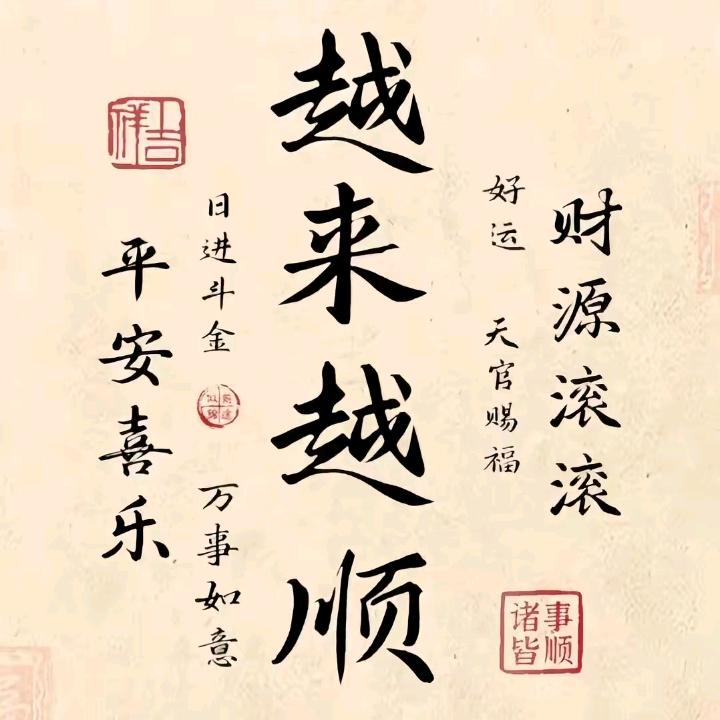 财源滚滚
好运 天官赐福
诸事皆顺
越来越顺
日进斗金
万事如意
吉祥
平安喜乐